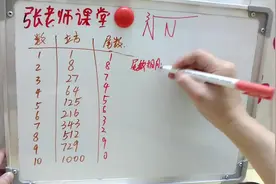 张老师课堂
∛N
数 立方 尾数
1 1 1
2 8 8
3 27 7
4 64 4
5 125 5
6 216 6
7 343 3
8 512 2
9 729 9
10 1000 0
尾数相